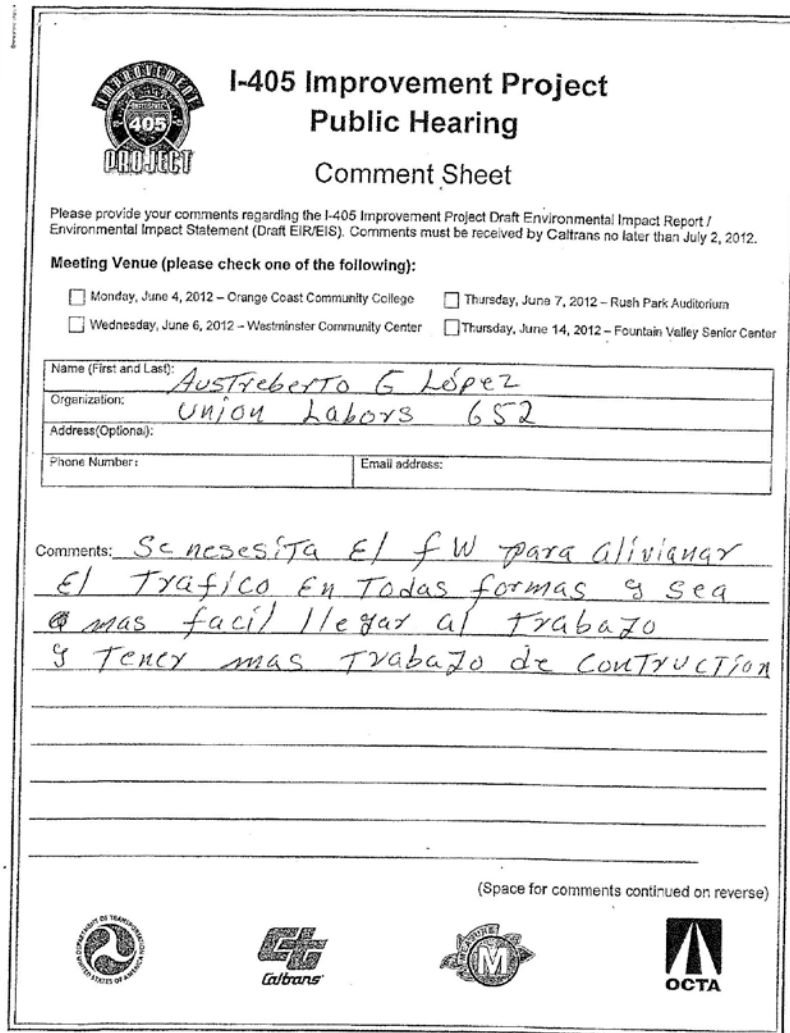 IMPROVEMENT
INTERSTATE
405
PROJECT
I-405 Improvement Project
Public Hearing
Comment Sheet
Please provide your comments regarding the I-405 Improvement Project Draft Environmental Impact Report /
Environmental Impact Statement (Draft EIR/EIS). Comments must be received by Caltrans no later than July 2, 2012.
Meeting Venue (please check one of the following):
Monday, June 4, 2012 – Orange Coast Community College
Thursday, June 7, 2012 – Rush Park Auditorium
Wednesday, June 6, 2012 – Westminster Community Center
Thursday, June 14, 2012 – Fountain Valley Senior Center
Name (First and Last): Austreberto G López
Organization: Union Labors 652
Address(Optional):
Phone Number:
Email address:
Comments: Se nesesita El fW para alivianar
El Trafico En Todas formas y sea
mas facil llegar al trabazo
y Tener mas Trabajo de Contruction
(Space for comments continued on reverse)
DEPARTMENT OF TRANSPORTATION
UNITED STATES OF AMERICA
Caltrans
MEASURE
M
OCTA